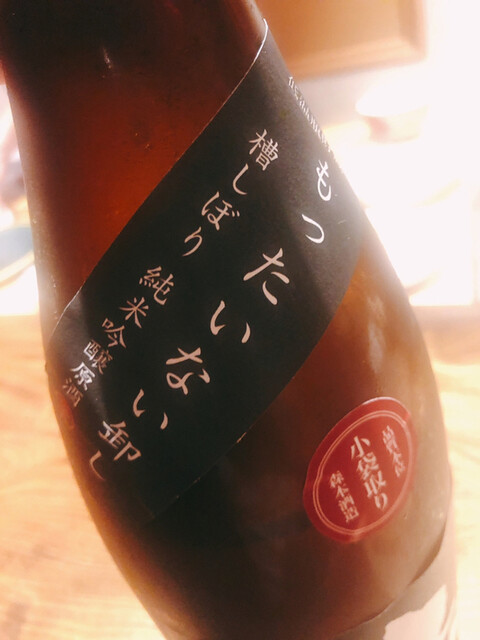 もったいない卸し
槽しぼり
純米吟醸原酒
小袋取り